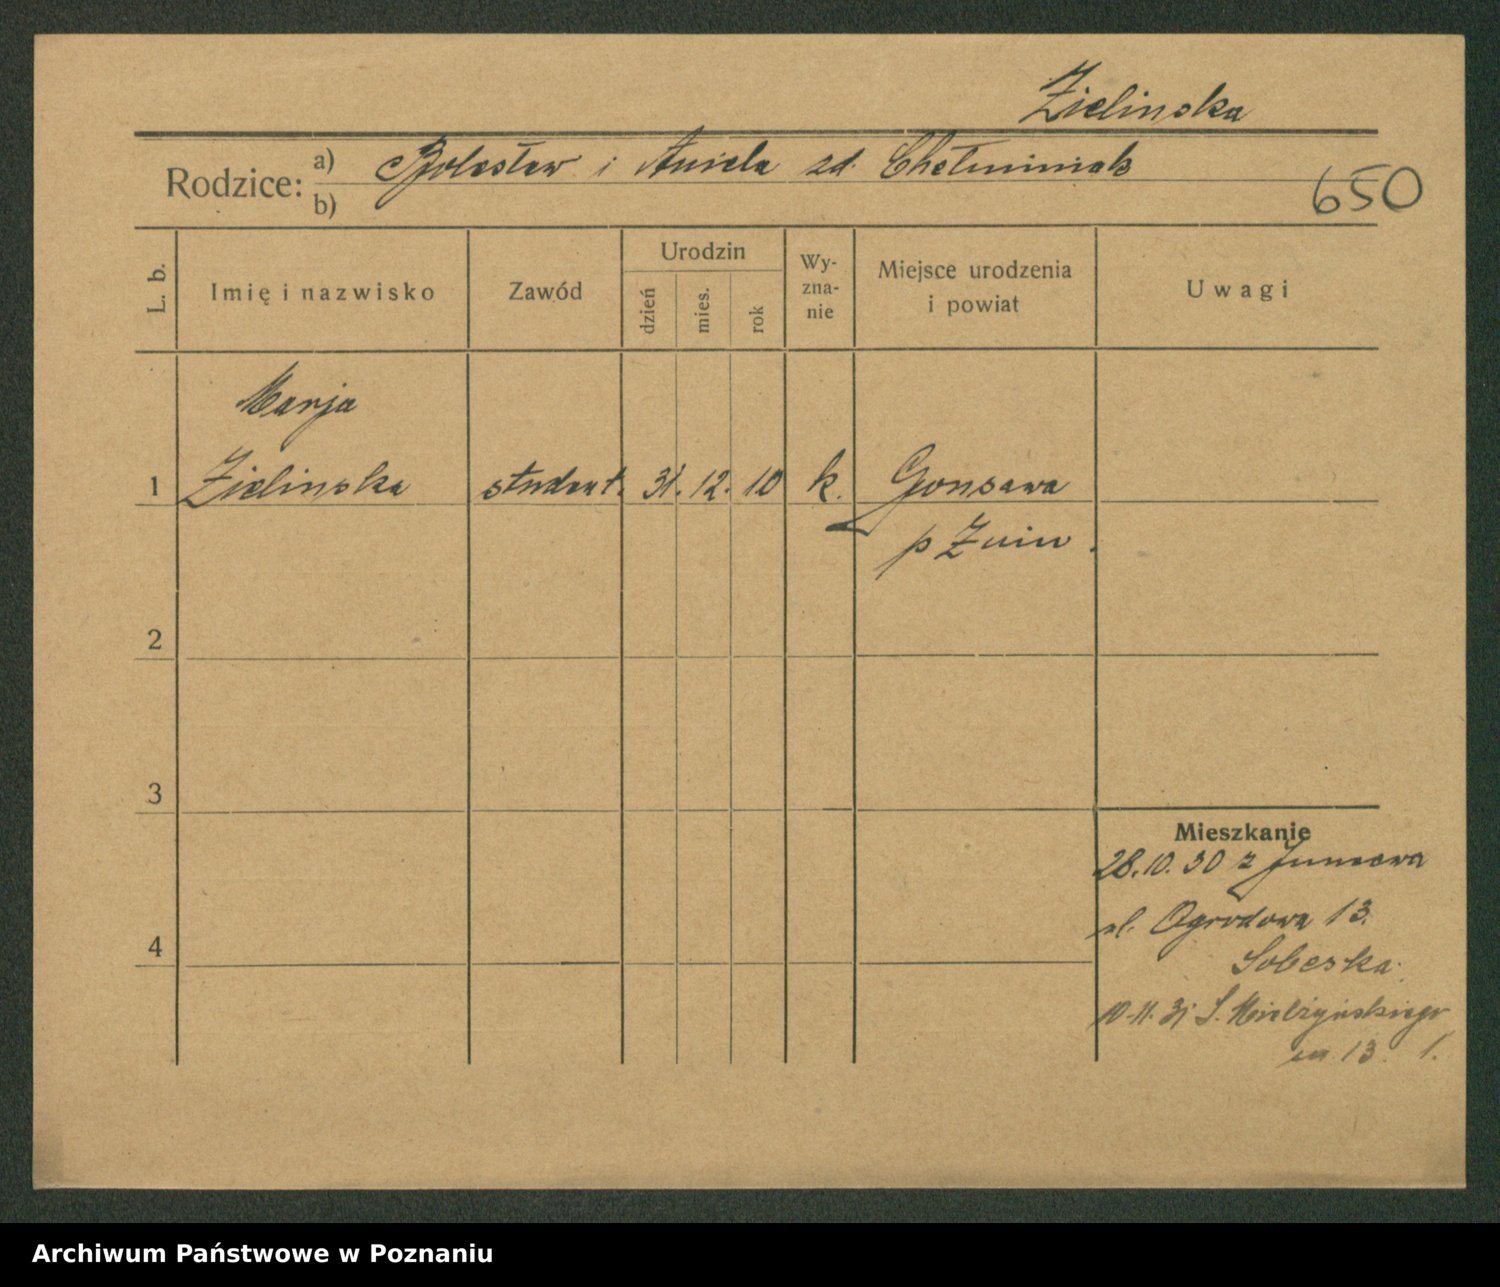 Zielinska
Rodzice: a) Bolesław i Aniela zd. Chełminiak
b)
650
L. b.
Imię i nazwisko
Zawód
Urodzin
dzień
mies.
rok
Wy-
zna-
nie
Miejsce urodzenia
i powiat
Uwagi
Marja
1 Zielinska student. 31. 12. 10 k. Gonsawa
p Żnin.
2
3
4
Mieszkanie
28.10.30 z
ul. Ogrodowa 13.
Sobeska
10.11.31 S. Mielżyńskiego
13. 1.
Archiwum Państwowe w Poznaniu